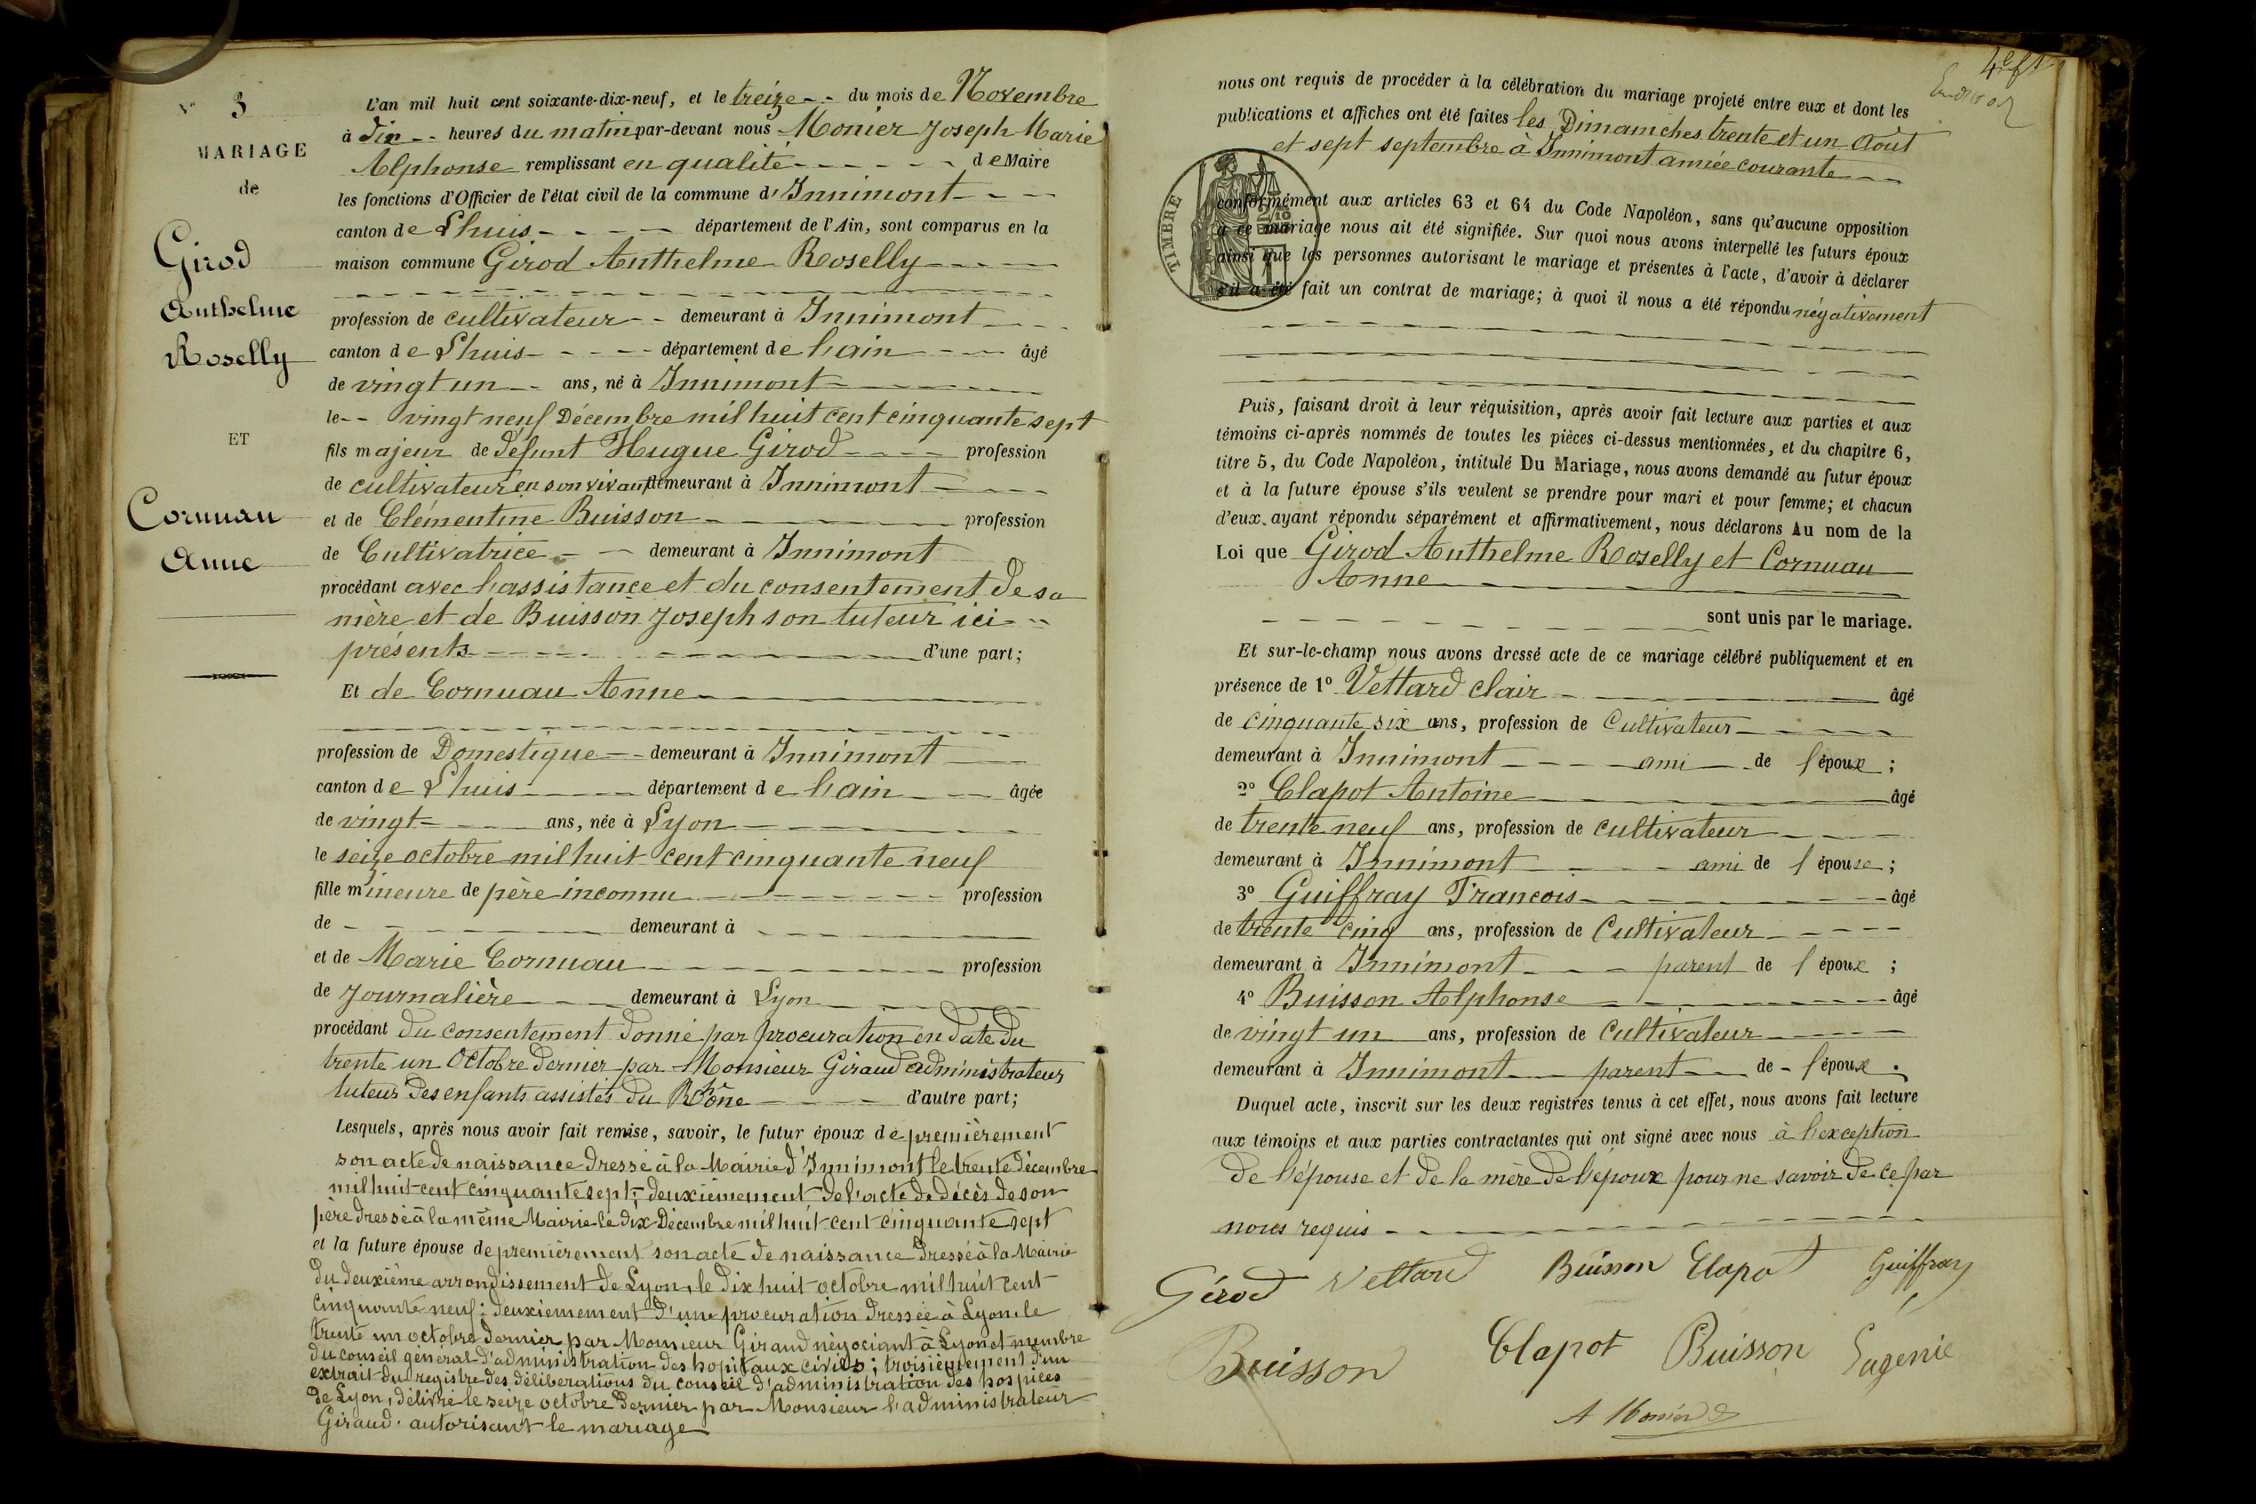 N° 3
MARIAGE
de
Girod
Anthelme
Roselly
ET
Cornuau
Anne
L'an mil huit cent soixante-dix-neuf, et le treize -- du mois de Novembre
à dix -- heures du matin par-devant nous Monier Joseph Marie
Alphonse remplissant en qualité - - - - - - de Maire
les fonctions d'Officier de l'état civil de la commune d'Innimont - - -
canton de Lhuis - - - - - département de l'Ain, sont comparus en la
maison commune Girod Anthelme Roselly - - - -
profession de cultivateur - - demeurant à Innimont - - -
canton de Lhuis - - - - - département de l'ain - - - - âgé
de vingt un - - ans, né à Innimont - - - - - -
le -- vingt neuf Décembre mil huit cent cinquante sept
fils majeur de défunt Hugue Girod - - - - profession
de cultivateur en son vivant demeurant à Innimont - - - -
et de Clémentine Buisson - - - - - - - profession
de Cultivatrice - - - demeurant à Innimont
procédant avec l'assistance et du consentement de sa
mère et de Buisson Joseph son tuteur ici --
présents - - - - - - - - - - d'une part;
Et de Cornuau Anne - - - - - - -
profession de Domestique - - demeurant à Innimont - - -
canton de Lhuis - - - - - département de l'ain - - - - âgée
de vingt - - - - ans, née à Lyon - - - - - -
le seize octobre mil huit cent cinquante neuf
fille mineure de père inconnu - - - - - - - - profession
de - - - - - - - - - demeurant à - - - - - - - -
et de Marie Cornuau - - - - - - - - - profession
de Journalière - - - demeurant à Lyon - - - - -
procédant du consentement donné par procuration en date du
trente un Octobre dernier par Monsieur Giraud administrateur
tuteur des enfants assistés du Rhône - - - - d'autre part;
Lesquels, après nous avoir fait remise, savoir, le futur époux de premièrement
son acte de naissance dressé à la Mairie d'Innimont le trente décembre
mil huit cent cinquante sept; deuxièmement de l'acte de décès de son
père dressé à la même Mairie le dix Décembre mil huit cent cinquante sept
et la future épouse de premièrement son acte de naissance dressé à la Mairie
du deuxième arrondissement de Lyon, le dix huit octobre mil huit cent
cinquante neuf: deuxièmement d'une procuration dressée à Lyon, le
trente un octobre dernier par Monsieur Giraud négociant à Lyon et membre
du conseil général d'administration des hopitaux civils; troisièmement d'un
extrait du registre des délibérations du conseil d'administration des hospices
de Lyon, délivré le seize octobre dernier par Monsieur l'administrateur
Giraud. autorisant le mariage
nous ont requis de procéder à la célébration du mariage projeté entre eux et dont les
publications et affiches ont été faites les Dimanches trente et un Août
et sept septembre à Innimont année courante - - -
TIMBRE
conformément aux articles 63 et 64 du Code Napoléon, sans qu'aucune opposition
à ce mariage nous ait été signifiée. Sur quoi nous avons interpellé les futurs époux
ainsi que les personnes autorisant le mariage et présentes à l'acte, d'avoir à déclarer
s'il a été fait un contrat de mariage; à quoi il nous a été répondu négativement
Puis, faisant droit à leur réquisition, après avoir fait lecture aux parties et aux
témoins ci-après nommés de toutes les pièces ci-dessus mentionnées, et du chapitre 6,
titre 5, du Code Napoléon, intitulé Du Mariage, nous avons demandé au futur époux
et à la future épouse s'ils veulent se prendre pour mari et pour femme; et chacun
d'eux ayant répondu séparément et affirmativement, nous déclarons Au nom de la
Loi que Girod Anthelme Roselly et Cornuau
Anne - - - - - - -
- - - - - - - - - - sont unis par le mariage.
Et sur-le-champ nous avons dressé acte de ce mariage célébré publiquement et en
présence de 1° Vettard clair - - - - - - - âgé
de cinquante six ans, profession de Cultivateur - - - - -
demeurant à Innimont - - - - ami - de l'époux ;
2° Clapot Antoine - - - - - - - - âgé
de trente neuf ans, profession de cultivateur - - - -
demeurant à Innimont - - - - ami de l'épouse ;
3° Guiffray Francois - - - - - - - - âgé
de trente cinq ans, profession de Cultivateur - - - - -
demeurant à Innimont - - - parent de l'époux ;
4° Buisson Alphonse - - - - - - - - âgé
de vingt un ans, profession de Cultivateur - - - -
demeurant à Innimont - - parent - - de - l'époux .
Duquel acte, inscrit sur les deux registres tenus à cet effet, nous avons fait lecture
aux témoins et aux parties contractantes qui ont signé avec nous à l'exception
de l'épouse et de la mère de l'époux pour ne savoir de ce par
nous requis - - - - - - - - -
Girod Vettard Buisson Clapot Guiffray
Buisson Clapot Buisson Eugénie
A Monier